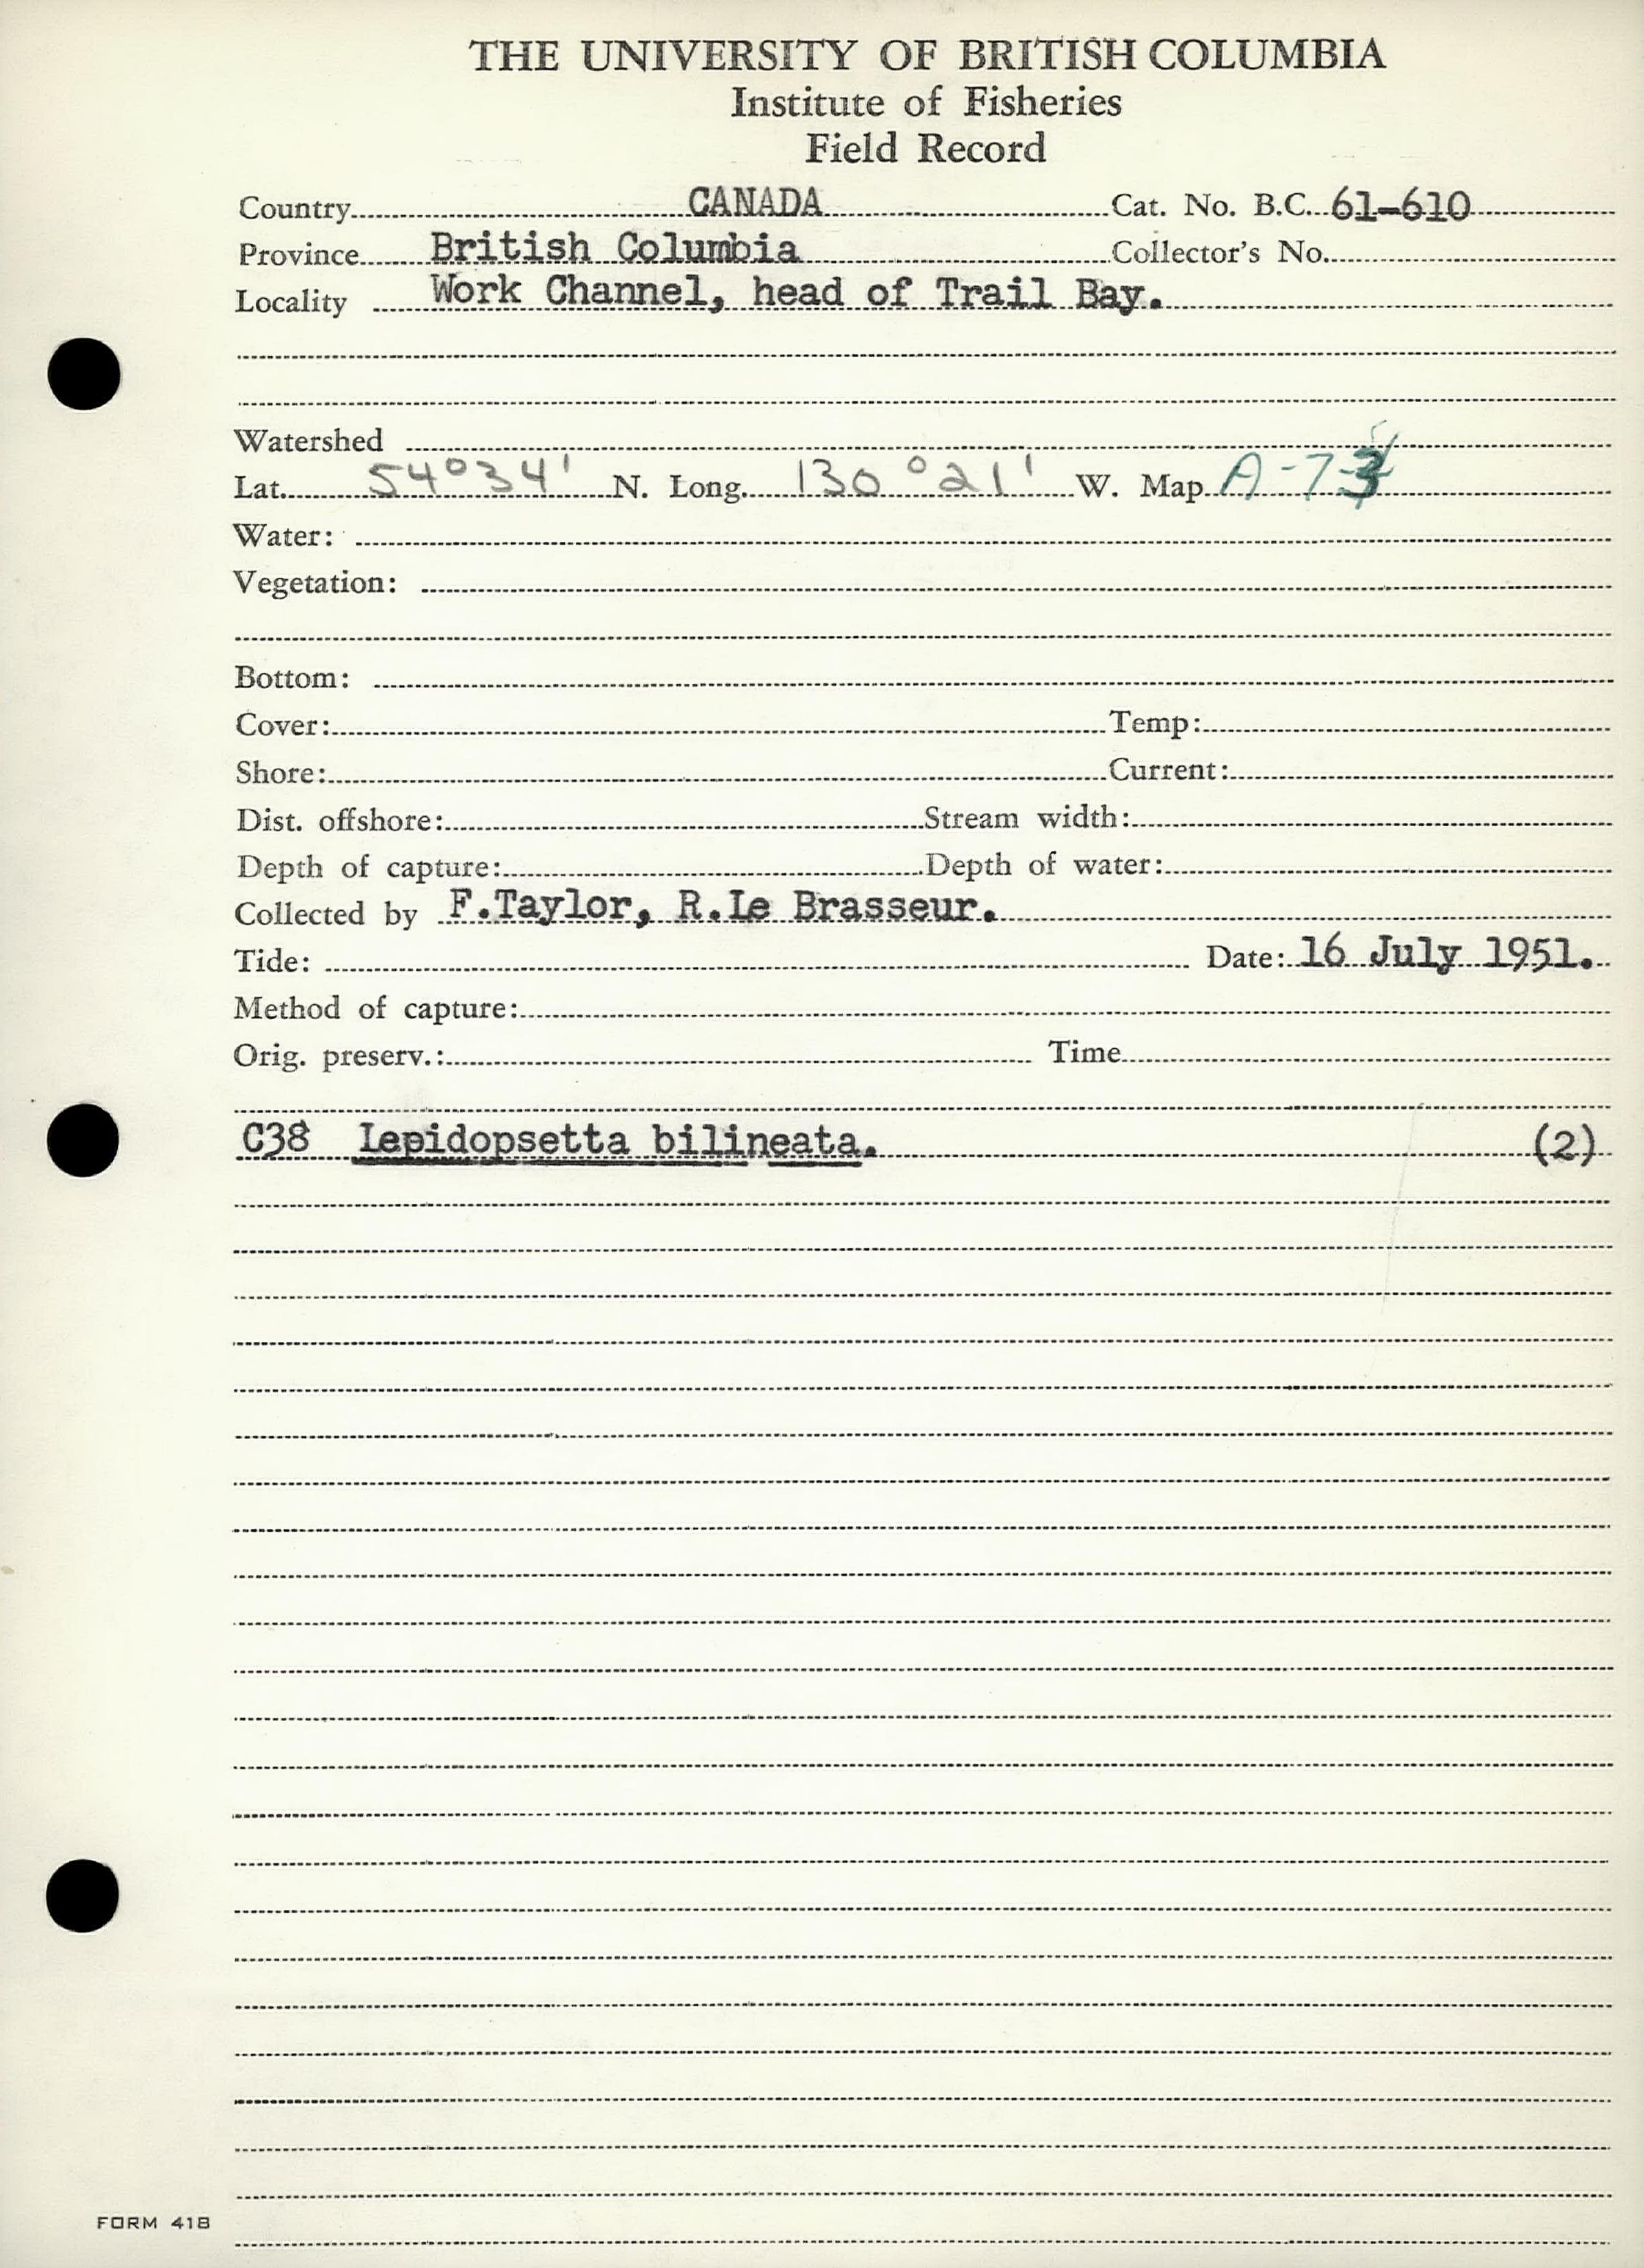 THE UNIVERSITY OF BRITISH COLUMBIA
Institute of Fisheries
Field Record
Country CANADA Cat. No. B.C. 61-610
Province British Columbia Collector's No.
Locality Work Channel, head of Trail Bay.
Watershed
Lat. 54°34' N. Long. 130°21' W. Map A-7-
Water:
Vegetation:
Bottom:
Cover: Temp:
Shore: Current:
Dist. offshore: Stream width:
Depth of capture: Depth of water:
Collected by F.Taylor, R.Le Brasseur.
Tide: Date: 16 July 1951.
Method of capture:
Orig. preserv.: Time
C38 Lepidopsetta bilineata. (2)
FORM 41B